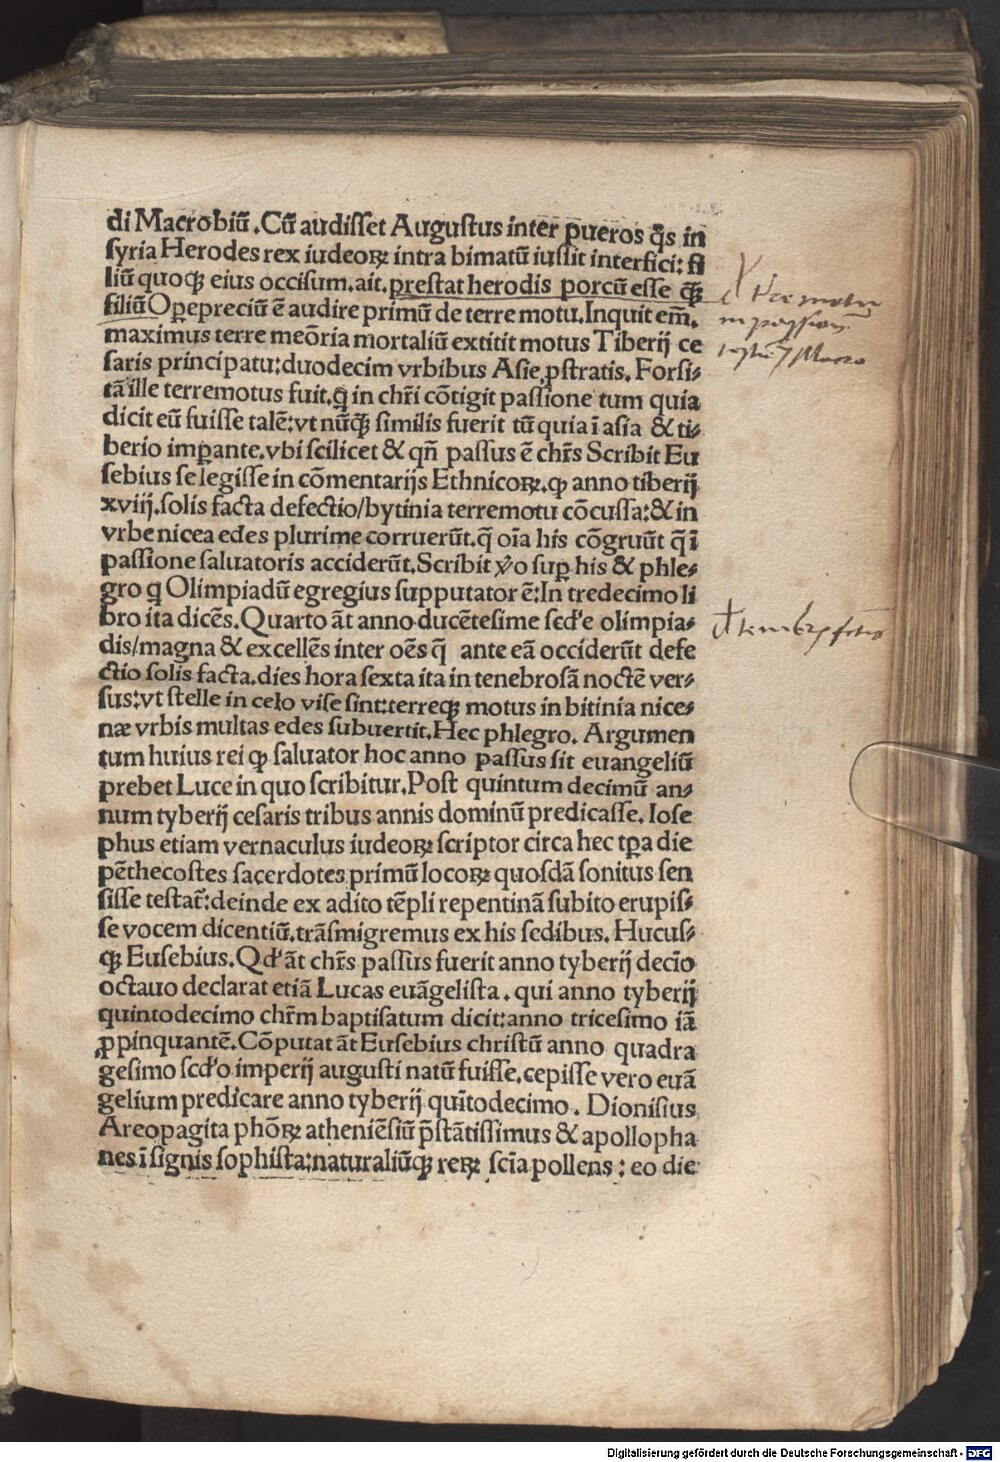 di Macrobiū. Cū audisset Augustus inter pueros q̄s in
syria Herodes rex iudeoꝝ intra bimatū iussit interfici: fi
liū quoqꝫ eius occisum. ait. prestat herodis porcū esse qꝫ̄
filiū Opepreciū ē audire primū de terre motu. Inquit em̄.
maximus terre meōria mortaliū extitit motus Tiberij ce
saris principatu: duodecim vrbibus Asie ꝓstratis. Forsi⸗
tā ille terremotus fuit. q̄ in chr̄i cōtigit passione tum quia
dicit eū fuisse talē: vt nūqꝫ̄ similis fuerit tū quia ī asia & ti⸗
berio imꝑante. vbi scilicet & qn̄ passus ē chr̄s Scribit Eu
sebius se legisse in cōmentarijs Ethnicoꝝ. ꝙ anno tiberij
xviij. solis facta defectio/bytinia terremotu cōcussa: & in
vrbe nicea edes plurime corruerūt. q̄ oīa his cōgruūt q̄ ī
passione saluatoris acciderūt. Scribit ѷo suꝑ his & phle⸗
gro q̄ Olimpiadū egregius supputator ē: In tredecimo li
bro ita dicēs. Quarto āt anno ducētesime scd'e olimpia⸗
dis/magna & excellēs inter oēs q̄ ante eā occiderūt defe
ctio solis facta. dies hora sexta ita in tenebrosā noctē ver⸗
sus: vt stelle in celo vise sint: terreqꝫ motus in bitinia nice⸗
næ vrbis multas edes subuertit. Hec phlegro. Argumen
tum huius rei ꝙ saluator hoc anno passus sit euangeliū
prebet Luce in quo scribitur. Post quintum decimū an⸗
num tyberij cesaris tribus annis dominū predicasse. Iose
phus etiam vernaculus iudeoꝝ scriptor circa hec tꝑa die
pēthecostes sacerdotes primū locoꝝ quosdā sonitus sen
sisse testat̄: deinde ex adito tēpli repentinā subito erupis⸗
se vocem dicentiū. trāsmigremus ex his sedibus. Hucus⸗
qꝫ Eusebius. Qd' āt chr̄s passus fuerit anno tyberij decīo
octauo declarat etiā Lucas euāgelista. qui anno tyberij
quintodecimo chr̄m baptisatum dicit: anno tricesimo iā
ꝓpinquantē. Cōputat āt Eusebius christū anno quadra
gesimo scd'o imperij augusti natū fuisse. cepisse vero euā
gelium predicare anno tyberij quītodecimo. Dionisius
Areopagita phōꝝ atheniēsiū p̄stātissimus & apollopha
nes ī signis sophista: naturaliūqꝫ reꝝ scīa pollens: eo die
Digitalisierung gefördert durch die Deutsche Forschungsgemeinschaft - DFG